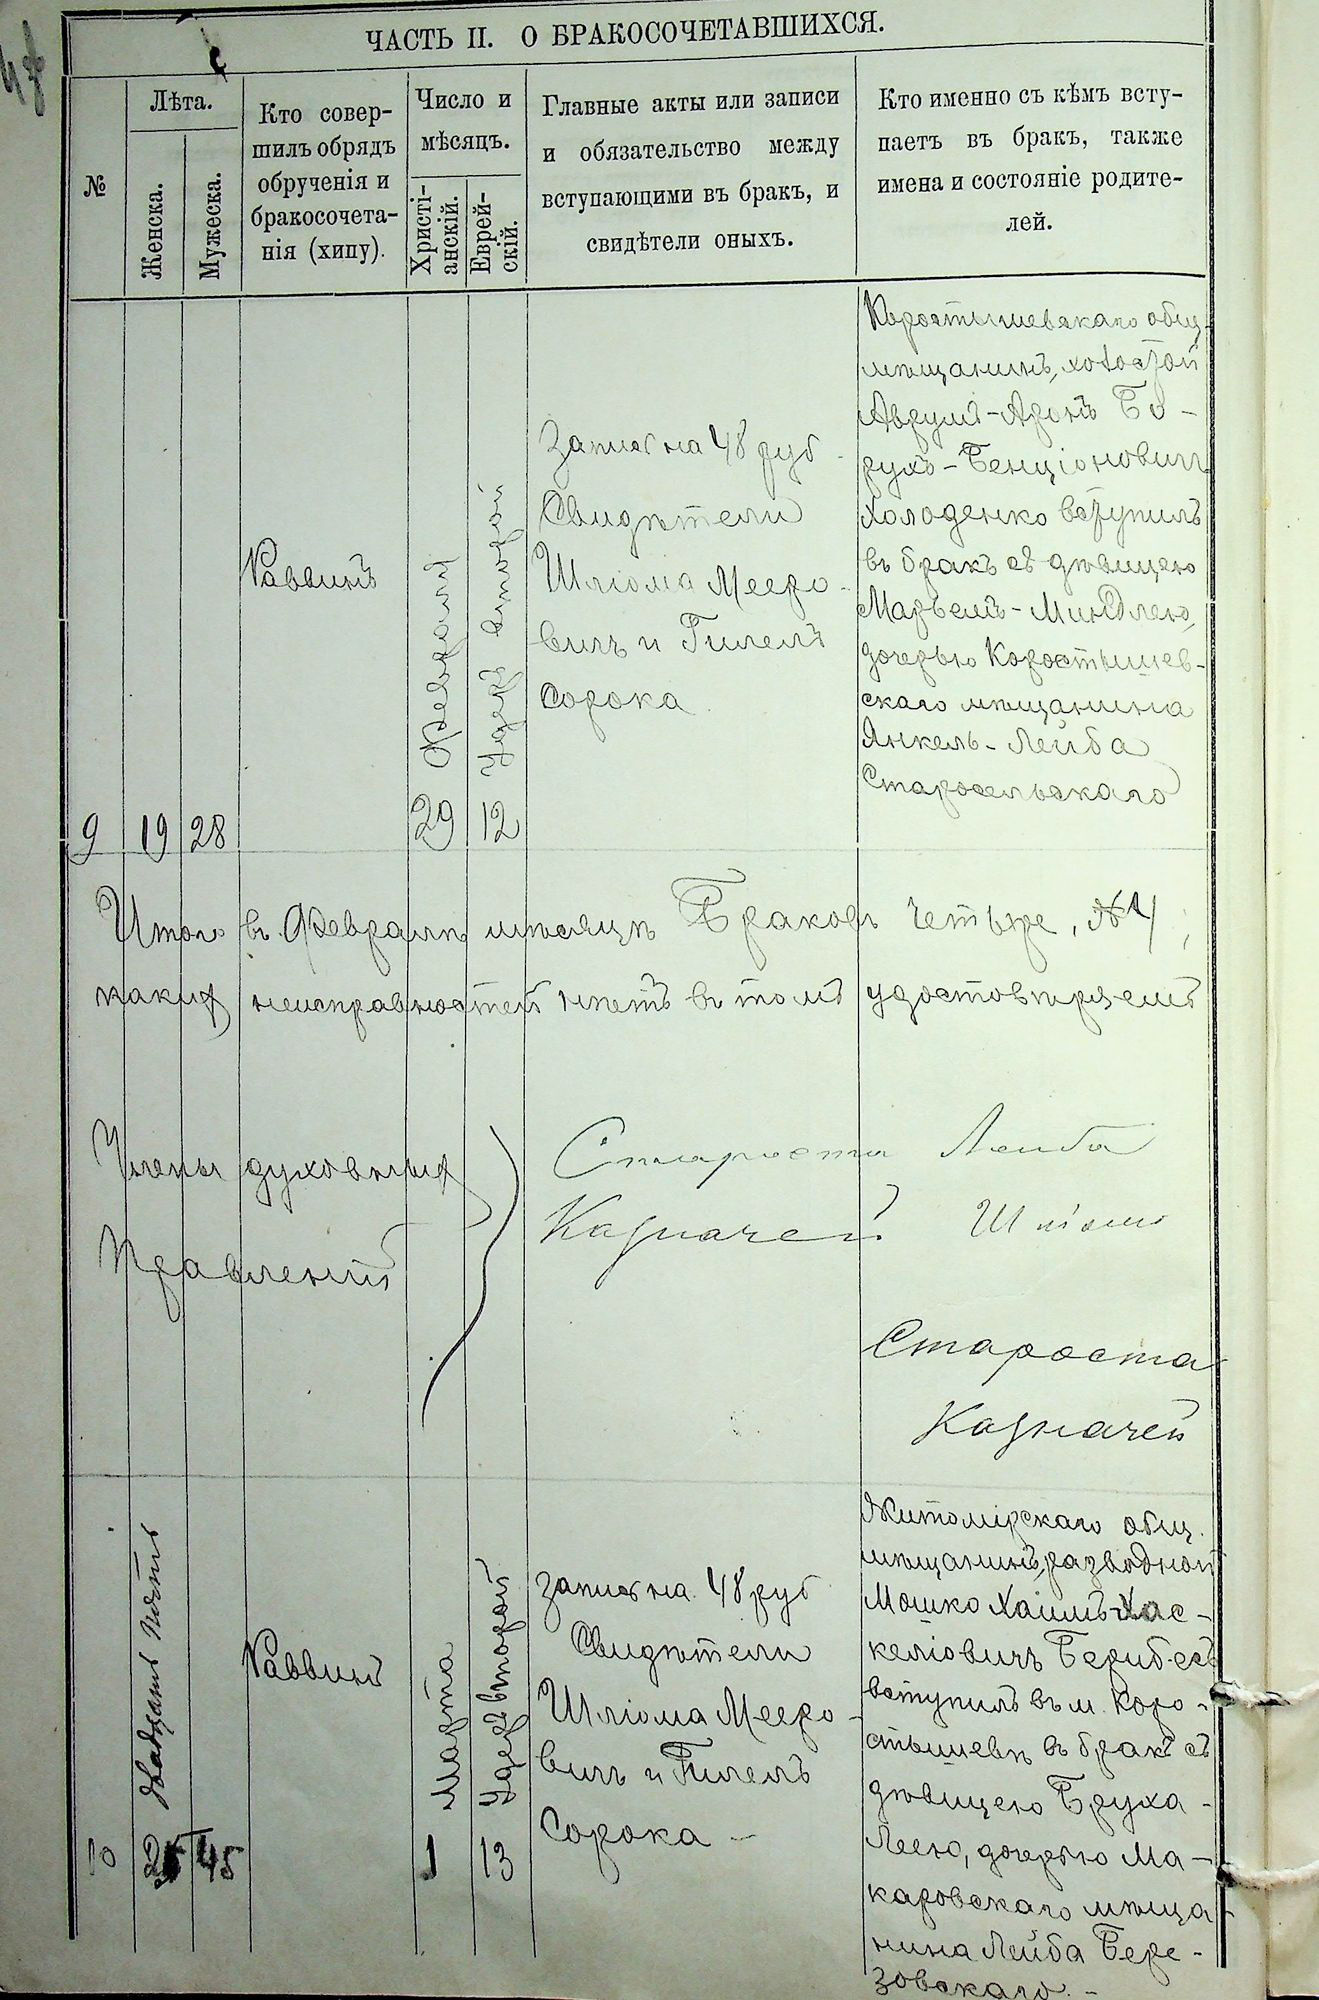 ЧАСТЬ II. О БРАКОСОЧЕТАВШИХСЯ.
№
Лѣта.
Женска.
Мужеска.
Кто совер-
шилъ обрядъ
обрученія и
бракосочета-
нія (хипу).
Число и
мѣсяцъ.
Христі-
анскій.
Еврей-
скій.
Главные акты или записи
и обязательство между
вступающими въ бракъ, и
свидѣтели оныхъ.
Кто именно съ кѣмъ всту-
паетъ въ бракъ, также
имена и состояніе родите-
лей.
9
19
28
Раввинъ
29
Февраля
12
Удеръ второй
Запись на 48 руб
Свидѣтели
Шліома Мееро-
вичъ и Гилелъ
Сорока
Коростышевскаго общ.
мѣщанинъ, холостой
Аврумъ-Аронъ Бо-
рухъ-Бенціоновичъ
Холоденко вступилъ
въ бракъ съ дѣвицею
Марьемъ-Миндлею,
дочерью Коростышев-
скаго мѣщанина
Янкель-Лейба
Старосельскаго
Итого въ Февралѣ мѣсяцѣ Браковъ четыре, №4,
какихъ неисправностей нѣтъ въ томъ удостовѣряемъ
Члены духовныхъ
Правленій
Староста Лейба
Казначей Шліома
Староста
Казначей
10
25
двадцать пять
45
Раввинъ
1
Марта
13
Удеръ второй
Запись на 48 руб
Свидѣтели
Шліома Мееро-
вичъ и Гилелъ
Сорока -
Житомірскаго общ.
мѣщанинъ, разводной
Мошко Хаимъ-Хас-
келіовичъ Берибесъ
вступилъ въ м. Коро-
стышевѣ въ бракъ съ
дѣвицею Бруха-
Леею, дочерью Ма-
каровскаго мѣща-
нина Лейба Бере-
зовскаго. -